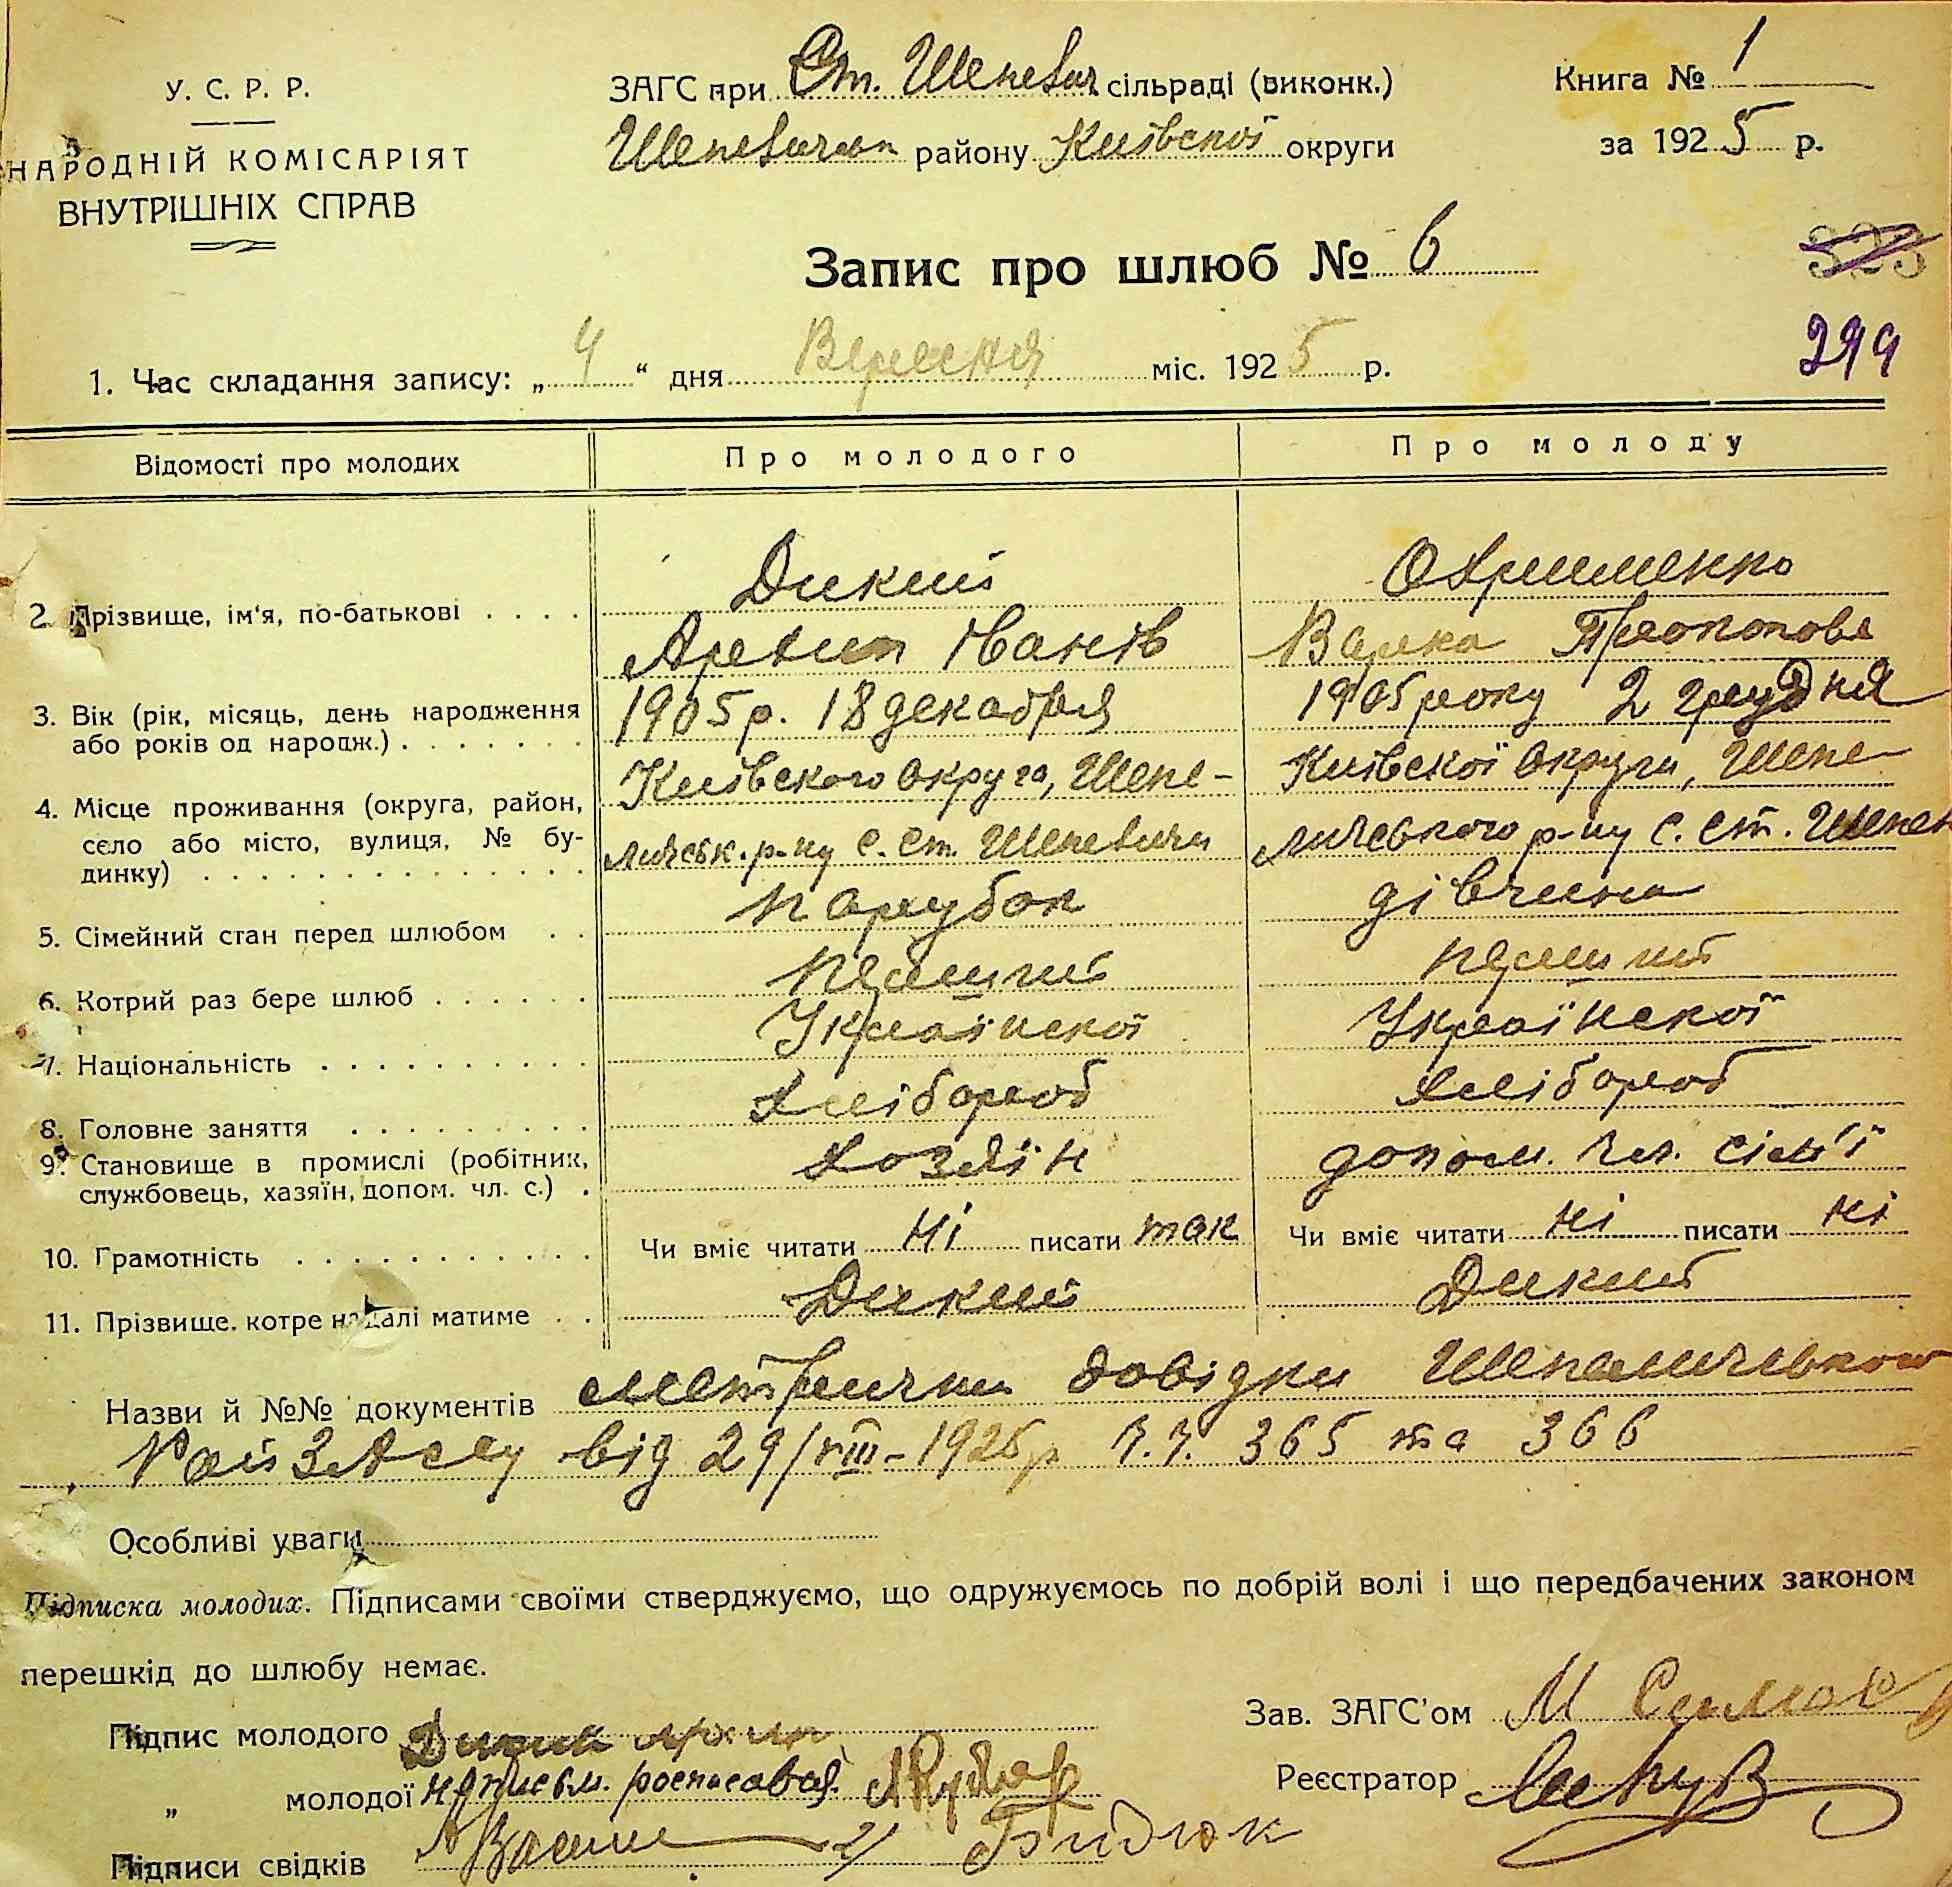 У. С. Р. Р.
НАРОДНІЙ КОМІСАРІЯТ
ВНУТРІШНІХ СПРАВ
ЗАГС при Ст. Шепевич сільраді (виконк.)
Шепевичан району Київскої округи
Книга № 1
за 1925 р.
Запис про шлюб № 6
323
299
1. Час складання запису: „ 4 “ дня Вересня міс. 1925 р.
Відомості про молодих Про молодого Про молоду
2. Прізвище, ім'я, по-батькові
Дикий
Архип Іванів
Охрименко
Варка Прокопова
3. Вік (рік, місяць, день народження
або років од народж.)
1905 р. 18 декабря
1905 року 2 грудня
4. Місце проживання (округа, район,
село або місто, вулиця, № бу-
динку)
Київского округа, Шепе-
личськ. р-ну с. Ст. Шепевичи
Київскої округи, Шепе
личевкого р-ну с. Ст. Шепел
5. Сімейний стан перед шлюбом
парубок
дівчина
6. Котрий раз бере шлюб
перший
перший
7. Національність
Українскої
Українскої
8. Головне заняття
хлібороб
хлібороб
9. Становище в промислі (робітник,
службовець, хазяїн, допом. чл. с.)
хозяїн
допом. чл. сім'ї
10. Грамотність
Чи вміє читати ні писати так
Чи вміє читати ні писати ні
11. Прізвище, котре надалі матиме
Дикий
Дикий
Назви й №№ документів метрични довідки Шепеличського
РайЗАГсу від 29/VIII-1925 р ч.ч. 365 та 366
Особливі уваги
Підписка молодих. Підписами своїми стверджуємо, що одружуємось по добрій волі і що передбачених законом
перешкід до шлюбу немає.
Підпис молодого Дикий Архип
„ молодої неписьм. росписався
Підписи свідків 2/ Бидюк
Зав. ЗАГС'ом М
Реєстратор